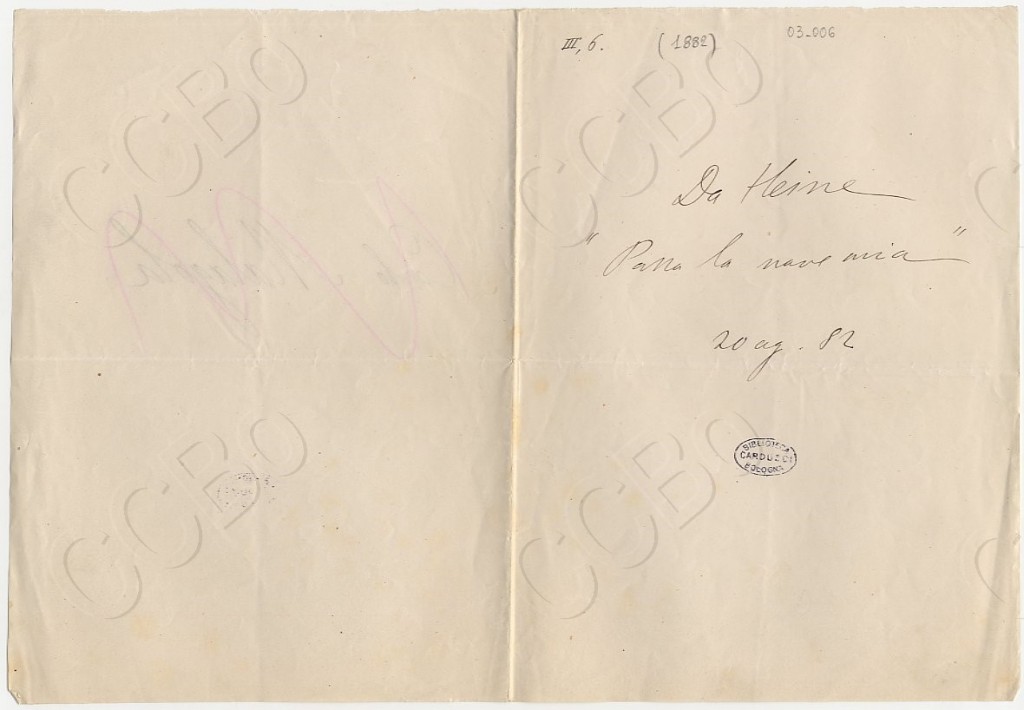 III, 6. (1882) 03-006
Da Heine
"Passa la nave mia"
20 ag. 82
BIBLIOTECA
CARDUCCI
BOLOGNA
CCBO
CCBO
CCBO
CCBO